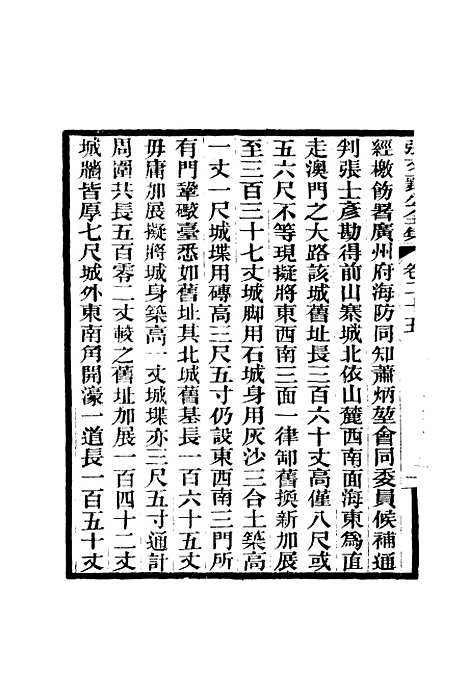 卷二十五
經檄飭署廣州府海防同知蕭炳堃會同委員候補通
判張士彥勘得前山寨城北依山麓西南面海東爲直
走澳門之大路該城舊址長三百六十丈高僅八尺或
五六尺不等現擬將東西南三面一律卸舊換新加展
至三百三十七丈城脚用石城身用灰沙三合土築高
一丈一尺城堞用磚高三尺五寸仍設東西南三門所
有門鞏礮臺悉如舊址其北城舊基長一百六十五丈
毋庸加展擬將城身築高一丈城堞亦三尺五寸通計
周圍共長五百零二丈較之舊址加展一百四十二丈
城牆皆厚七尺城外東南角開濠一道長一百五十丈